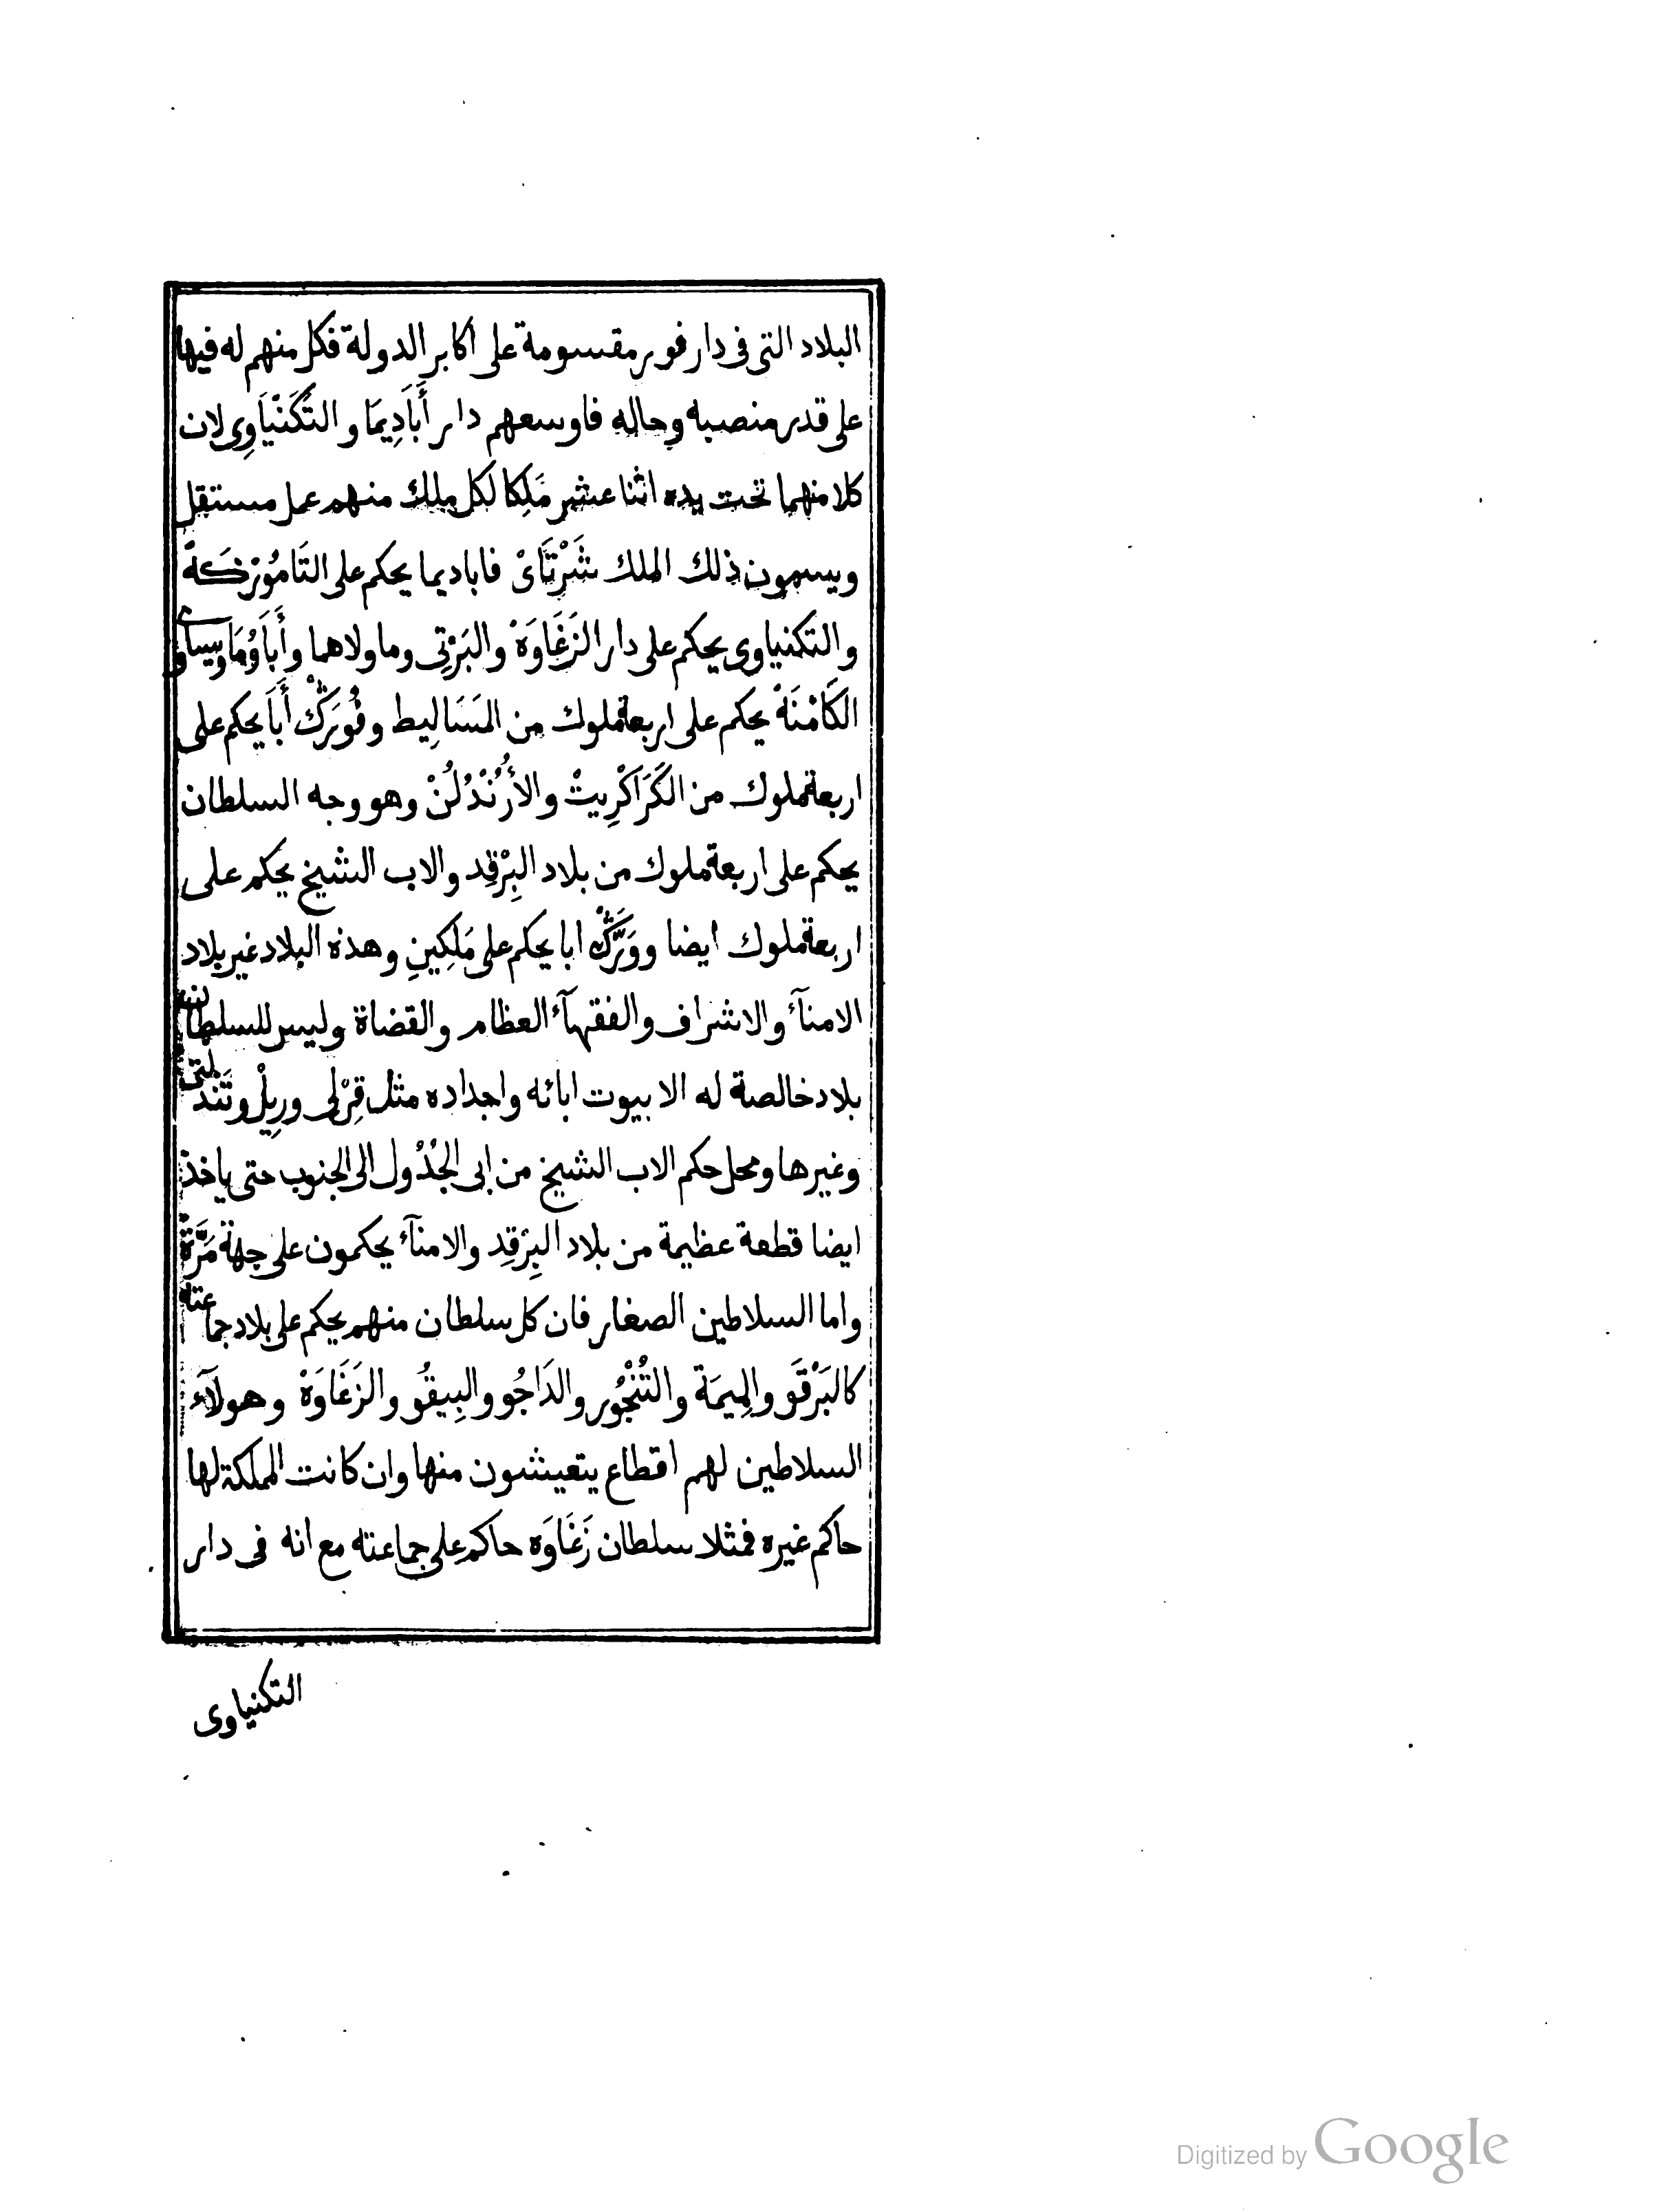 البلاد التى فى دار فور مقسومة على اكابر الدولة فكل منهم له فيها
على قدر منصبه وحاله فاوسعهم دار أَبَادِيمَا والتَكَنْيَاوِى لان
كلا منهما تحت يده اثنا عشر مَلِكا لكل ملك منهم عمل مستقل
ويسمون ذلك الملك شَرْتَاىْ فاباديما يحكم على التَامُوُرْكَةْ
والتكنياوى يحكم على دار الزَغَاوَةْ والبَرْتِى وما ولاهما وأَبَاوُمَا وسياى و
الكَامْنَةْ يحكم على اربعة ملوك من المَسَالِيط وفُورَنْكْ أَبَا يحكم على
اربعة ملوك من الكَرَاكْرِيتْ والأُرُنْدُلُنْ وهو وجه السلطان
يحكم على اربعة ملوك من بلاد البِرْقِد والاب الشيخ يحكم على
اربعة ملوك ايضا ووَرَّنْكْ ابا يحكم على مَلِكِينِ وهذه البلاد غير بلاد
الامنآء والاشراف والفقهآء العظام والقضاة وليس للسلطان
بلاد خالصة له الا بيوت ابائه واجداده مثل قِرْلِى ورِيِلْ وتَنْدَلْتِى
وغيرها ومحل حكم الاب الشيخ من ابى الجُدُول الى الجنوب حتى ياخذ
ايضا قطعة عظيمة من بلاد البِرْقِد والامنآء يحكمون على جهة مَرَّةْ
واما السلاطين الصغار فان كل سلطان منهم يحكم على بلاد جماعته
كالبَرْقَو والمِيمَة والتُنْجُور والدَاجُو والبِيقُو والزَغَاوَةْ وهولآء
السلاطين لهم اقطاع يتعيشون منها وان كانت المملكة لها
حاكم غيره فمثلا سلطان زَغَاوَه حاكم على جماعته مع انه فى دار
التكنياوى
Digitized by Google